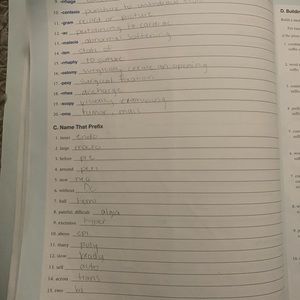 9. -rrhage
10. -centesis puncture to withdraw fluid
11. -gram record or picture
12. -ac pertaining to cardiac
13. -malacia abnormal softening
14. -ism state of
15. -rrhaphy to suture
16. -ostomy surgically create an opening
17. -pexy surgical fixation
18. -rrhea discharge
19. -scopy visually examining
20. -oma tumor, mass
C. Name That Prefix
1. inner endo
2. large macro
3. before pre
4. around peri
5. new neo
6. without
7. half hemi
8. painful; difficult algia
9. excessive hyper
10. above epi
11. many poly
12. slow brady
13. self auto
14. across trans
15. two bi
D. Buildin